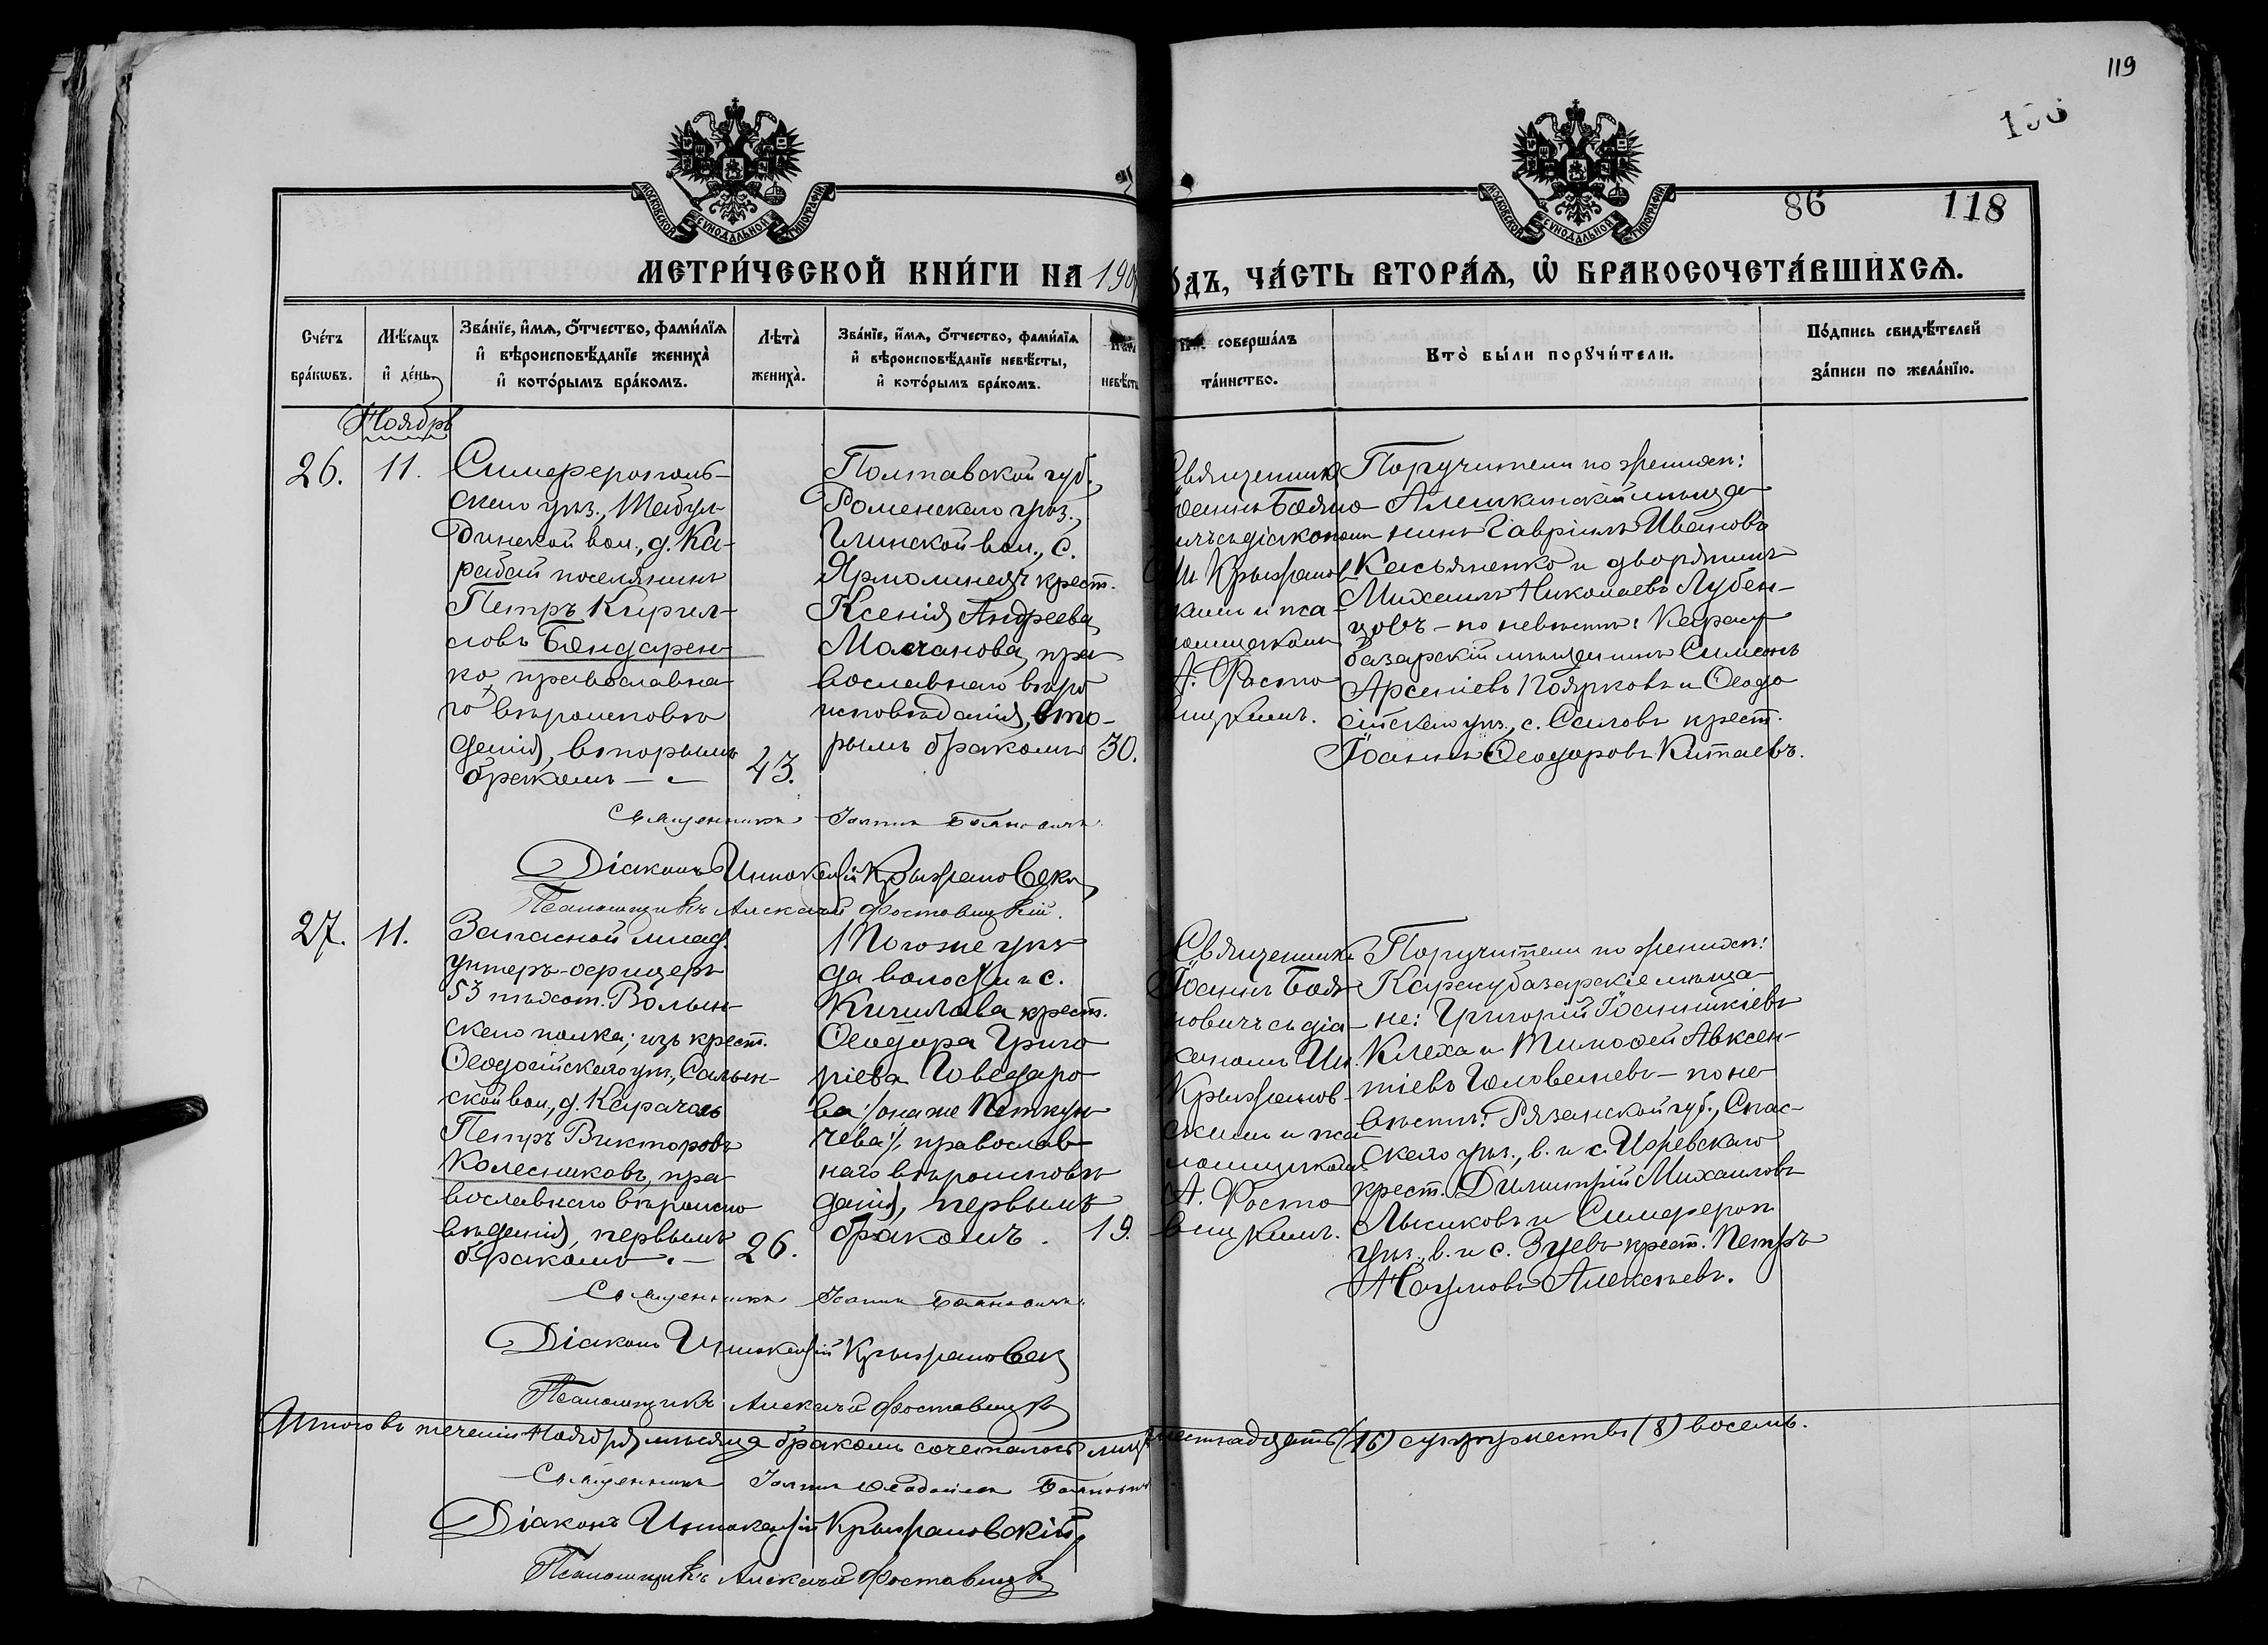 119
86 118
МОСКОВСКОЙ СѴНОДАЛЬНОЙ ТИПОГРАФІИ
МОСКОВСКОЙ СѴНОДАЛЬНОЙ ТИПОГРАФІИ
МЕТРИ́ЧЕСКОЙ КНИ́ГИ НА 190
ОДЪ, ЧА́СТЬ ВТОРА́Ѧ, Ѿ БРАКОСОЧЕТА́ВШИХСѦ.
Сче́тъ бра́кѡвъ.
Мѣ́сѧцъ и҆ де́нь.
Зва́нїе, и҆́мѧ, ѻ҆́тчество, фами́лїѧ
и҆ вѣроисповѣ́данїе жениха̀
и҆ кото́рымъ бра́комъ.
Лѣта̀ жениха̀.
Зва́нїе, и҆́мѧ, ѻ҆́тчество, фами́лїѧ
и҆ вѣроисповѣ́данїе невѣ́сты,
и҆ кото́рымъ бра́комъ.
невѣст
соверша́лъ
та́инство.
Кто̀ бы́ли порꙋчи́тели.
По́дпись свидѣ́телей
за́писи по жела́нїю.
Ноябрь
26.
11.
Симферополь-
скаго уѣз.,
динской вол., д. Ка-
рабай поселянинъ
Петръ Кирил-
ловъ Бондарен-
ко, православна-
го вѣроисповѣ
данія, вторымъ
бракомъ —
43.
Полтавской губ.,
Роменскаго уѣз.,
вол., с.
Ярмолинецъ крест.
Ксенія Андреева
Молчанова, пра-
вославнаго вѣро
исповѣданія, вто-
рымъ бракомъ
30.
Священникъ
Іоаннъ Бояно-
вичъ съ діакономъ
Ин. Крыжанов
скимъ и пса-
ломщикомъ
А. Фоста
вицкимъ.
Поручители по женихѣ:
Алешкинскій мѣща-
нинъ Гавріилъ Ивановъ
Касьяненко и дворянинъ
Михаилъ Николаевъ Лубен-
цовъ — по невѣстѣ: Карасу-
базарскій мѣщанинъ Симеонъ
Арсеніевъ Поярковъ и Ѳеодо
сійскаго уѣз., с. Саловъ крест.
Іоаннъ Ѳеодоровъ Китаевъ.
Священникъ Іоаннъ Бояновичъ.
Діаконъ Иннокентій Крыжановскій
Псаломщикъ Алексѣй Фоставицкій.
27.
11.
Запасной млад.
унтеръ-офицеръ
53 пѣхот. Волын-
скаго полка, изъ крест.
Ѳеодосійскаго уѣз., Салын-
ской вол., д. Карачоль
Петръ Викторовъ
Колесниковъ, пра-
вославнаго вѣроиспо
вѣданія, первымъ
бракомъ. —
26.
Того же уѣз-
да волости и с.
Кишлава крест.
Ѳеодора Григо
ріева
ва /: она же Петкун
чева :/, православ-
наго вѣроисповѣ
данія, первымъ
бракомъ.
19.
Священникъ
Іоаннъ Боя-
новичъ съ діа-
кономъ Ин.
Крыжанов-
скимъ и пса-
ломщикомъ
А. Фоста
вицкимъ.
Поручители по женихѣ:
Карасубазарскіе мѣща-
не: Григорій Іоанникіевъ
Клеха и Тимофей Авксен-
тіевъ Головешевъ — по не-
вѣстѣ: Рязанской губ., Спас-
скаго уѣз., в. и с. Ижевскаго
крест. Димитрій Михаиловъ
Лысиковъ и Симфероп.
уѣз., в. и с. Зуевъ крест. Петръ
Наумовъ Алексѣевъ.
Священникъ Іоаннъ Бояновичъ.
Діаконъ Иннокентій Крыжановск
Псаломщикъ Алексѣй Фоставицк
Итого въ теченіи Ноября мѣсяца бракомъ сочеталось лицъ шестнадцать (16) супружествъ (8) восемь.
Священникъ Іоаннъ Бояновичъ
Діаконъ Иннокентій Крыжановскій
Псаломщикъ Алексѣй Фоставицк